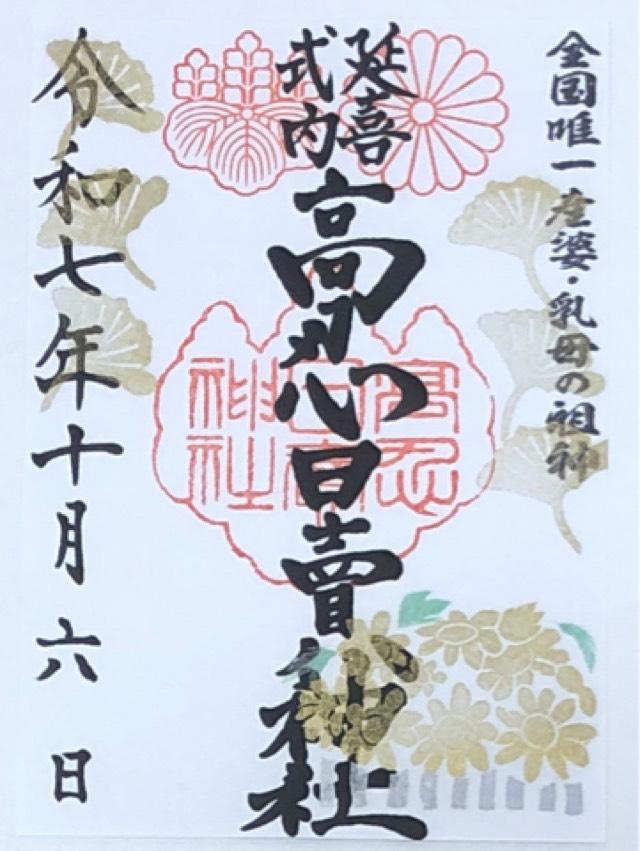 全国唯一産婆・乳母の祖神
延喜
式内
高忍日賣神社
高忍
日賣
神社
令和七年十月六日